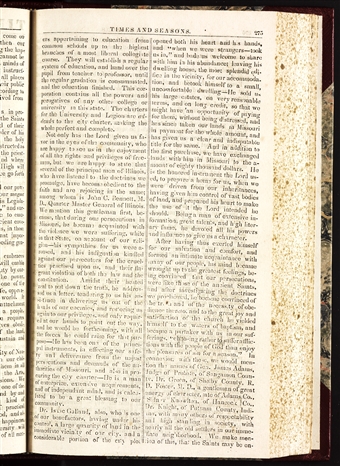 TIMES AND SEASONS. 275
ers appertaining to education from
common schools up to the highest
branches of a most liberal collegiate
course. They will establish a regular
system of education, and hand over the
pupil from teacher to professor, until
the regular gradation is consummated,
and the education finished. This cor-
poration contains all the powers and
prerogatives of any other college or
university in this state. The charters
for the University and Legion are ad-
denda to the city charter, making the
whole perfect and complete.
Not only has the Lord given us fa-
vor in the eyes of the community, who
are happy to see us in the enjoyment
of all the rights and privileges of free-
men, but we are happy to state that
several of the principal men of Illinois,
who have listened to the doctrines we
promulge, have become obedient to the
faith and are rejoicing in the same;
among whom is John C. Bennett, M.
D., Quarter Master General of Illinois.
We mention this gentleman first, be-
cause, that during our persecutions in
Missouri, he became acquainted with
the violence we were suffering, while
in that State, on account of our reli-
gion—his sympathies for us were
aroused, and his indignation kindled
against our persecutors for the cruel-
ties practised upon us, and their fla-
grant violation of both the law and the
constitution. Amidst their heated
zeal to put down the truth, he addres-
sed us a letter, tendering to us his as-
sistance in delivering us out of the
hands of our enemies, and restoring us
again to our privileges, and only requir-
ed at our hands to point out the way,
and he would be forthcoming, with all
the forces he could raise for that pur-
pose—He has been one of the princi-
pal instruments, in effecting our safe-
ty and deliverance from the unjust
persecutions and demands of the au-
thorities of Missouri, and also in pro-
curing the city charter—He is a man
of enterprize, extensive acquirements,
and of independant mind, and is calcu-
lated to be a great blessing to our
community.
Dr. Isaac Galland, also, who is one
of our benefactors, having under his
control, a large quantity of land in the
immediate vicinity of our city, and a
considerable portion of the city plot,
opened both his heart and his hands,
and "when we were strangers—took
us in," and bade us welcome to share
with him in his abundance; leaving his
dwelling house, the most splendid edi-
fice in the vicinity, for our accommoda-
tion, and betook himself to a small,
uncomfortable dwelling—He sold us
his large estates, on very reasonable
terms, and on long credit, so that we
might have an opportunity of paying
for them, without being distressed, and
has since taken our lands in Missouri
in payment for the whole amount, and
has given us a clear and indisputable
title for the same. And in addition to
the first purchase, we have exchanged
lands with him in Missouri to the a-
mount of eighty thousand dollars. He
is the honored instrument the Lord us-
ed, to prepare a home for us, when we
were driven from our inheritances,
having given him control of vast bodies
of land, and prepared his heart to make
the use of it the Lord intended he
should. Being a man of extensive in-
formation, great talents, and high liter-
ary fame, he devoted all his powers
and influence to give us a character.
After having thus exerted himself
for our salvation and comfort, and
formed an intimate acquaintance with
many of our people, his mind became
wrought up to the greatest feelings, be-
ing convinced that our persecutions,
were like those of the ancient Saints,
and after investigating the doctrines
we proclaimed, he became convinced of
the truth and of the necessity of obe-
dience thereto, and to the great joy and
satisfaction of the church he yielded
himself to the waters of baptism, and
became a partaker with us in our suf-
ferings, "choosing rather to suffer afflic-
tions with the people of God than enjoy
the pleasures of sin for a season." In
connection with these, we would men-
tion the names of Gen. James Adams,
Judge of Probate, of Sangamon County,
Dr. Green, of Shelby County, R.
D. Foster, M. D. a gentleman of great
energy of character, late of Adams Co.,
Sidney Knowlton, of Hancock Co.,
Dr. Knight, of Putnam County, Indi-
ana, with many others of respectability
and high standing in society, with
nearly all the old settlers in our imme-
diate neighborhood. We make men-
tion of this, that the Saints may be en-